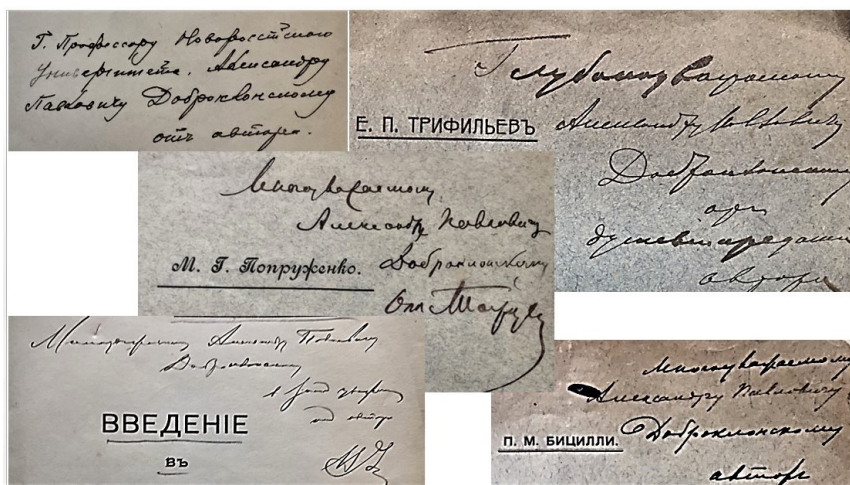 Г. Профессору Новороссійского
Университета, Александру
Павловичу Доброклонскому
отъ автора.
Глубокоуважаемому
Е. П. ТРИФИЛЬЕВЪ
Александру Павловичу
Доброклонскому
отъ
душевно преданнаго
автора
Многоуважаемому
Александру Павловичу
М. Г. Попруженко.
Доброклонскому
Многоуважаемому Александру Павловичу
Доброклонскому
отъ автора
ВВЕДЕНІЕ
въ
многоуважаемому
Александру Павловичу
П. М. БИЦИЛЛИ.
Доброклонскому
авторъ